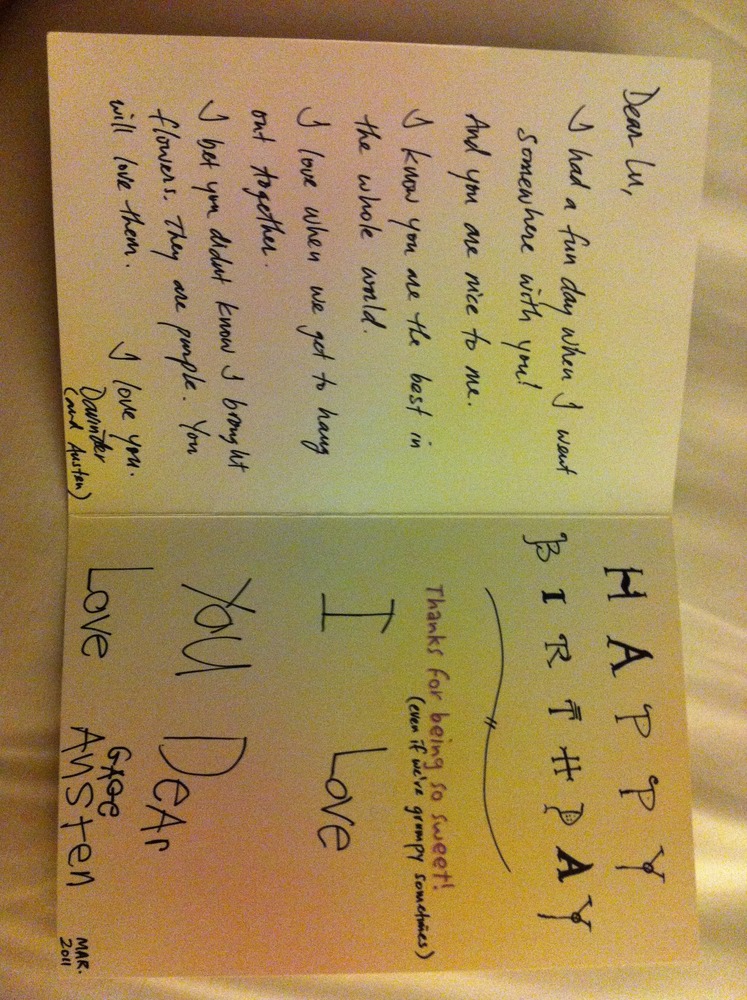 Dear Lu,
I had a fun day when I went
somewhere with you!
And you are nice to me.
I know you are the best in
the whole world.
I love when we get to hang
out together.
I bet you didnt know I brought
flowers. They are purple. You
will love them.
I love you.
Davinder
(and Austen)
HAPPY
BIRTHDAY
Thanks for being so sweet!
(even if we're grumpy sometimes)
I Love
You DeAr
Love
AuSten
MAR.
2011